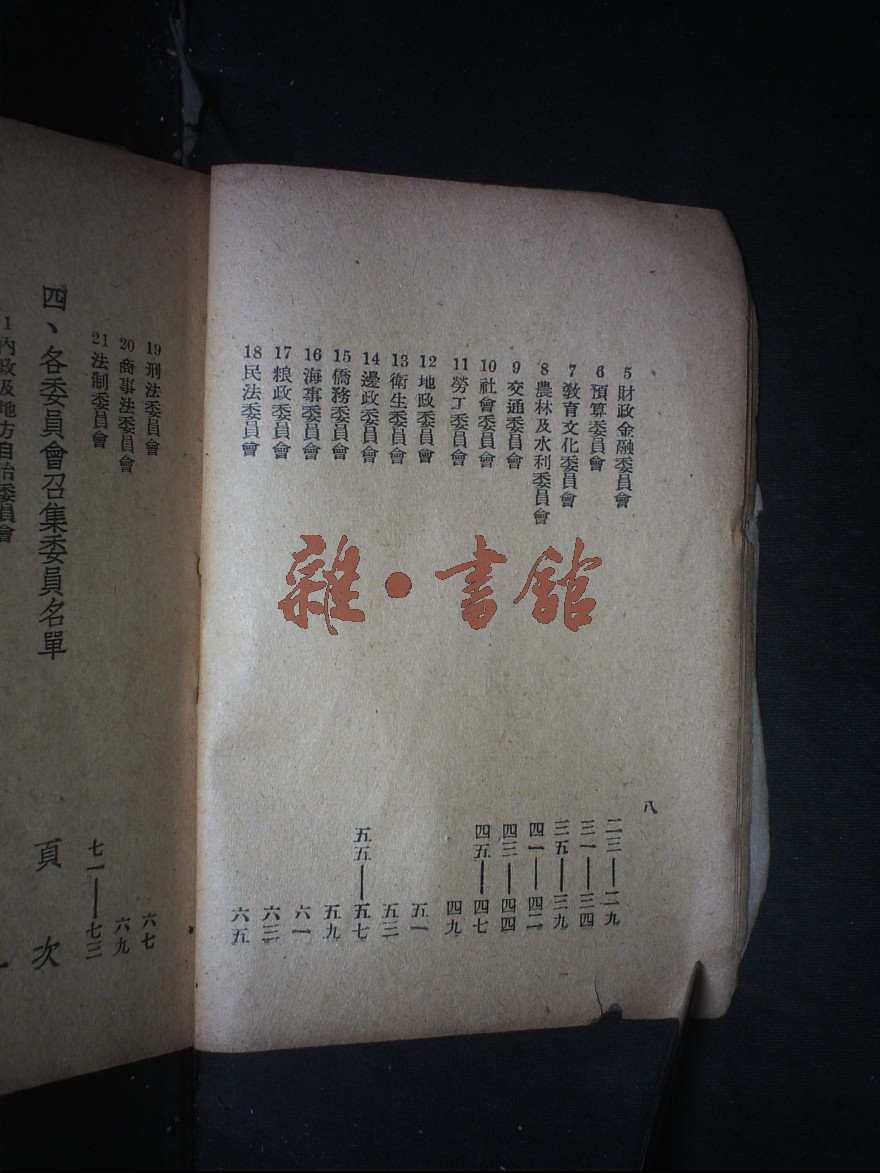 八
5 財政金融委員會 二三——二九
6 預算委員會 三一——三四
7 教育文化委員會 三五——三九
8 農林及水利委員會 四一——四二
9 交通委員會 四三——四四
10 社會委員會 四五——四七
11 勞工委員會 四九
12 地政委員會 五一
13 衛生委員會 五三
14 邊政委員會 五五——五七
15 僑務委員會 五九
16 海事委員會 六一
17 粮政委員會 六三
18 民法委員會 六五
19 刑法委員會 六七
20 商事法委員會 六九
21 法制委員會 七一——七三
四、各委員會召集委員名單 頁次
1 內政及地方自治委員會 一
雜·書館